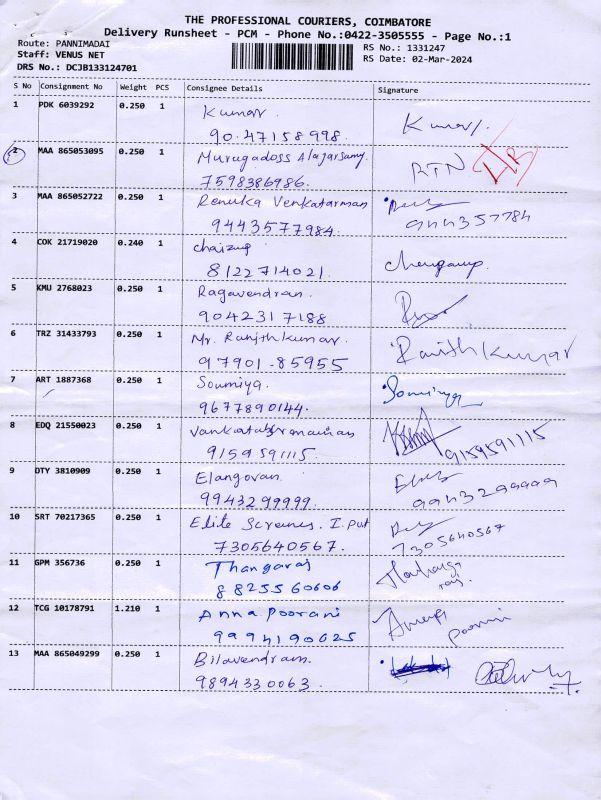 THE PROFESSIONAL COURIERS, COIMBATORE
Delivery Runsheet - PCM - Phone No.:0422-3505555 - Page No.:1
Route: PANNIMADAI
Staff: VENUS NET
DRS No.: DCJB133124701
RS No.: 1331247
RS Date: 02-Mar-2024
S No Consignment No Weight PCS Consignee Details Signature
1 PDK 6039292 0.250 1 Kumar. Kumar.
90.47158998.
2 MAA 865053095 0.250 1 Murugadoss Alagarsamy. RTN
7598386986.
3 MAA 865052722 0.250 1 Renuka Venkatarman
9443577984. 944357784
4 COK 21719020 0.240 1 chaizup
8122714021.
5 KMU 2768023 0.250 1 Ragavendran.
9042317188
6 TRZ 31433793 0.250 1 Mr. Ranjithkumar. Ranjith Kumar
97901-85955
7 ART 1887368 0.250 1 Soumiya. Soumiya
9677890144.
8 EDQ 21550023 0.250 1
9159591115. 9159591115
9 DTY 3810909 0.250 1 Elangovan.
9943299999. 9943299999
10 SRT 70217365 0.250 1 Elite Screenes. I. Put
7305640567. 7305640567
11 GPM 356736 0.250 1 Thangaraj
8825560606
12 TCG 10178791 1.210 1 Anna Poorani
9994190025 Poorani
13 MAA 865049299 0.250 1 Bilavendram.
9894330063.